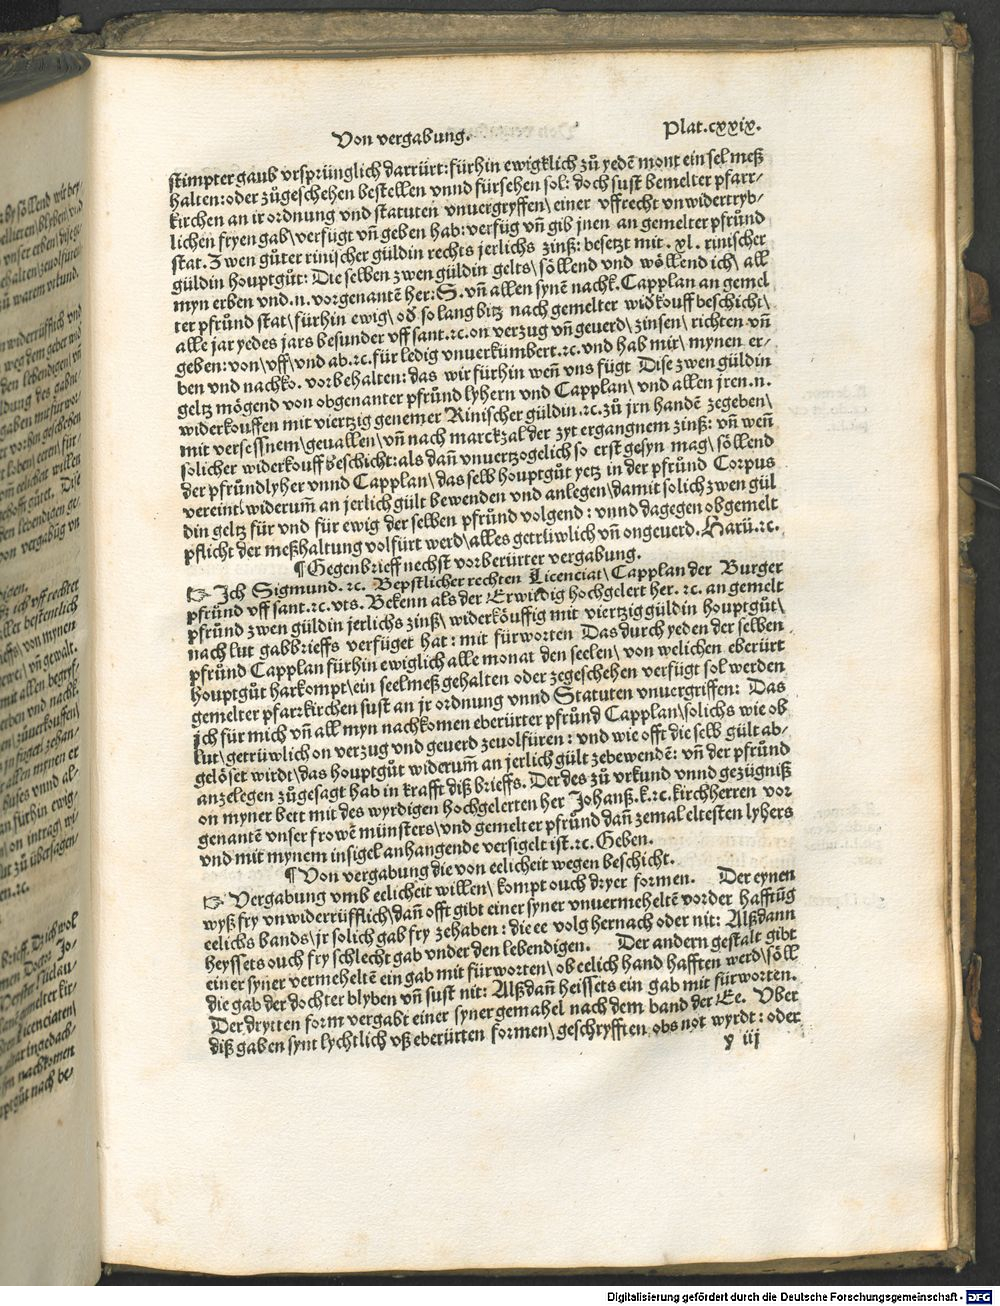 Von vergabung.
Plat.cxxix.
stimpter gaub vrsprünglich darrürt: fürhin ewigklich zů yedẽ mont ein sel meß
halten: oder zůgeschehen bestellen vnnd fürsehen sol: doch sust bemelter pfarr-
kirchen an ir ordnung vnd statuten vnuergryffen\ einer vffrecht vnwidertryb-
lichen fryen gab\ verfügt vñ geben hab: verfüg vñ gib jnen an gemelter pfrůnd
stat. Zwen gůter rinischer güldin rechts jerlichs zinß: besetzt mit .xl. rinischer
güldin houptgůt: Die selben zwen güldin gelts\ söllend vnd wöllend ich\ all
myn erben vnd .n. vorgenantẽ her: S. vñ allen synẽ nachk. Capplan an gemel
ter pfrůnd stat\ fürhin ewig\ oď so lang bitz nach gemelter widkouff beschicht\
alle jar yedes jars besunder vff sant .ꝛc. on verzug vñ geuerd\ zinsen\ richten vñ
geben: von\ vff\ vnd ab .ꝛc. für ledig vnuerkümbert .ꝛc. vnd hab mir\ mynen er-
ben vnd nachko. vorbehalten: das wir fürhin weñ vns fügt Dise zwen güldin
geltz mögend von obgenanter pfrůnd lyhern vnd Capplan\ vnd allen jren .n.
widerkouffen mit viertzig genemer Rinischer güldin .ꝛc. zů jrn handẽ zegeben\
mit versessnem\ geuallen\ vñ nach marckzal der zyt ergangnem zinß: vñ weñ
solicher widerkouff beschicht: als dañ vnuertzogelich so erst gesyn mag\ söllend
der pfrůndlyher vnnd Capplan\ das selb houptgůt yetz in der pfrůnd Corpus
vereint\ widerum̃ an jerlich gült bewenden vnd anlegen\ damit solich zwen gül
din geltz für vnd für ewig der selben pfrůnd volgend: vnnd dagegen obgemelt
pflicht der meßhaltung volfürt werd\ alles getrüwlich vñ ongeuerd. Harü .ꝛc.
¶ Gegenbrieff nechst vorberürter vergabung.
☞ Ich Sigmund .ꝛc. Bepstlicher rechten Licenciat\ Capplan der Burger
pfrůnd vff sant .ꝛc. vts. Bekenn als der Erwirdig hochgelert her .ꝛc. an gemelt
pfrůnd zwen güldin jerlichs zinß\ widerköuffig mit viertzig güldin houptgůt\
nach lut gabbrieffs verfüget hat: mit fürworten Das durch yeden der selben
pfrůnd Capplan fürhin ewiglich alle monat den seelen\ von welichen eberürt
houptgůt harkompt\ ein seelmeß gehalten oder zegeschehen verfügt sol werden
gemelter pfarrkirchen sust an jr ordnung vnnd Statuten vnuergriffen: Das
ich für mich vñ all myn nachkomen eberürter pfrůnd Capplan\ solichs wie ob
lut\ getrüwlich on verzug vnd geuerd zeuolfüren: vnd wie offt die selb gült ab-
gelöset wirdt\ das houptgůt widerum̃ an jerlich gült zebewendẽ: vñ der pfrůnd
anzelegen zůgesagt hab in krafft diß brieffs. Der des zů vrkund vnnd gezügniß
on myner bett mit des wyrdigen hochgelerten her Johanß .k. ꝛc. kirchherren vor
genantẽ vnser frowẽ münsters\ vnd gemelter pfrůnd dañ zemal eltesten lyhers
vnd mit mynem insigel anhangende versigelt ist .ꝛc. Geben.
¶ Von vergabung die von eelicheit wegen beschicht.
☞ Vergabung vmb eelicheit willen\ kompt ouch dryer formen. Der eynen
wyß fry vnwiderrüfflich\ dañ offt gibt einer syner vnuermeheltẽ vor der hafftũg
eelichs bands\ jr solich gab fry zehaben: die ee volg hernach oder nit: Alßdann
heyssets ouch fry schlecht gab vnder den lebendigen. Der andern gestalt gibt
einer syner vermeheltẽ ein gab mit fürworten\ ob eelich hand hafften werd\ söll
die gab der dochter blyben vñ sust nit: Alßdañ heissets ein gab mit fürworten.
Der drytten form vergabt einer syner gemahel nach dem band der Ee. Vber
diß gaben synt lychtlich vß eberürten formen\ geschryfften obs not wyrdt: oder
y iii
Digitalisierung gefördert durch die Deutsche Forschungsgemeinschaft - DFG